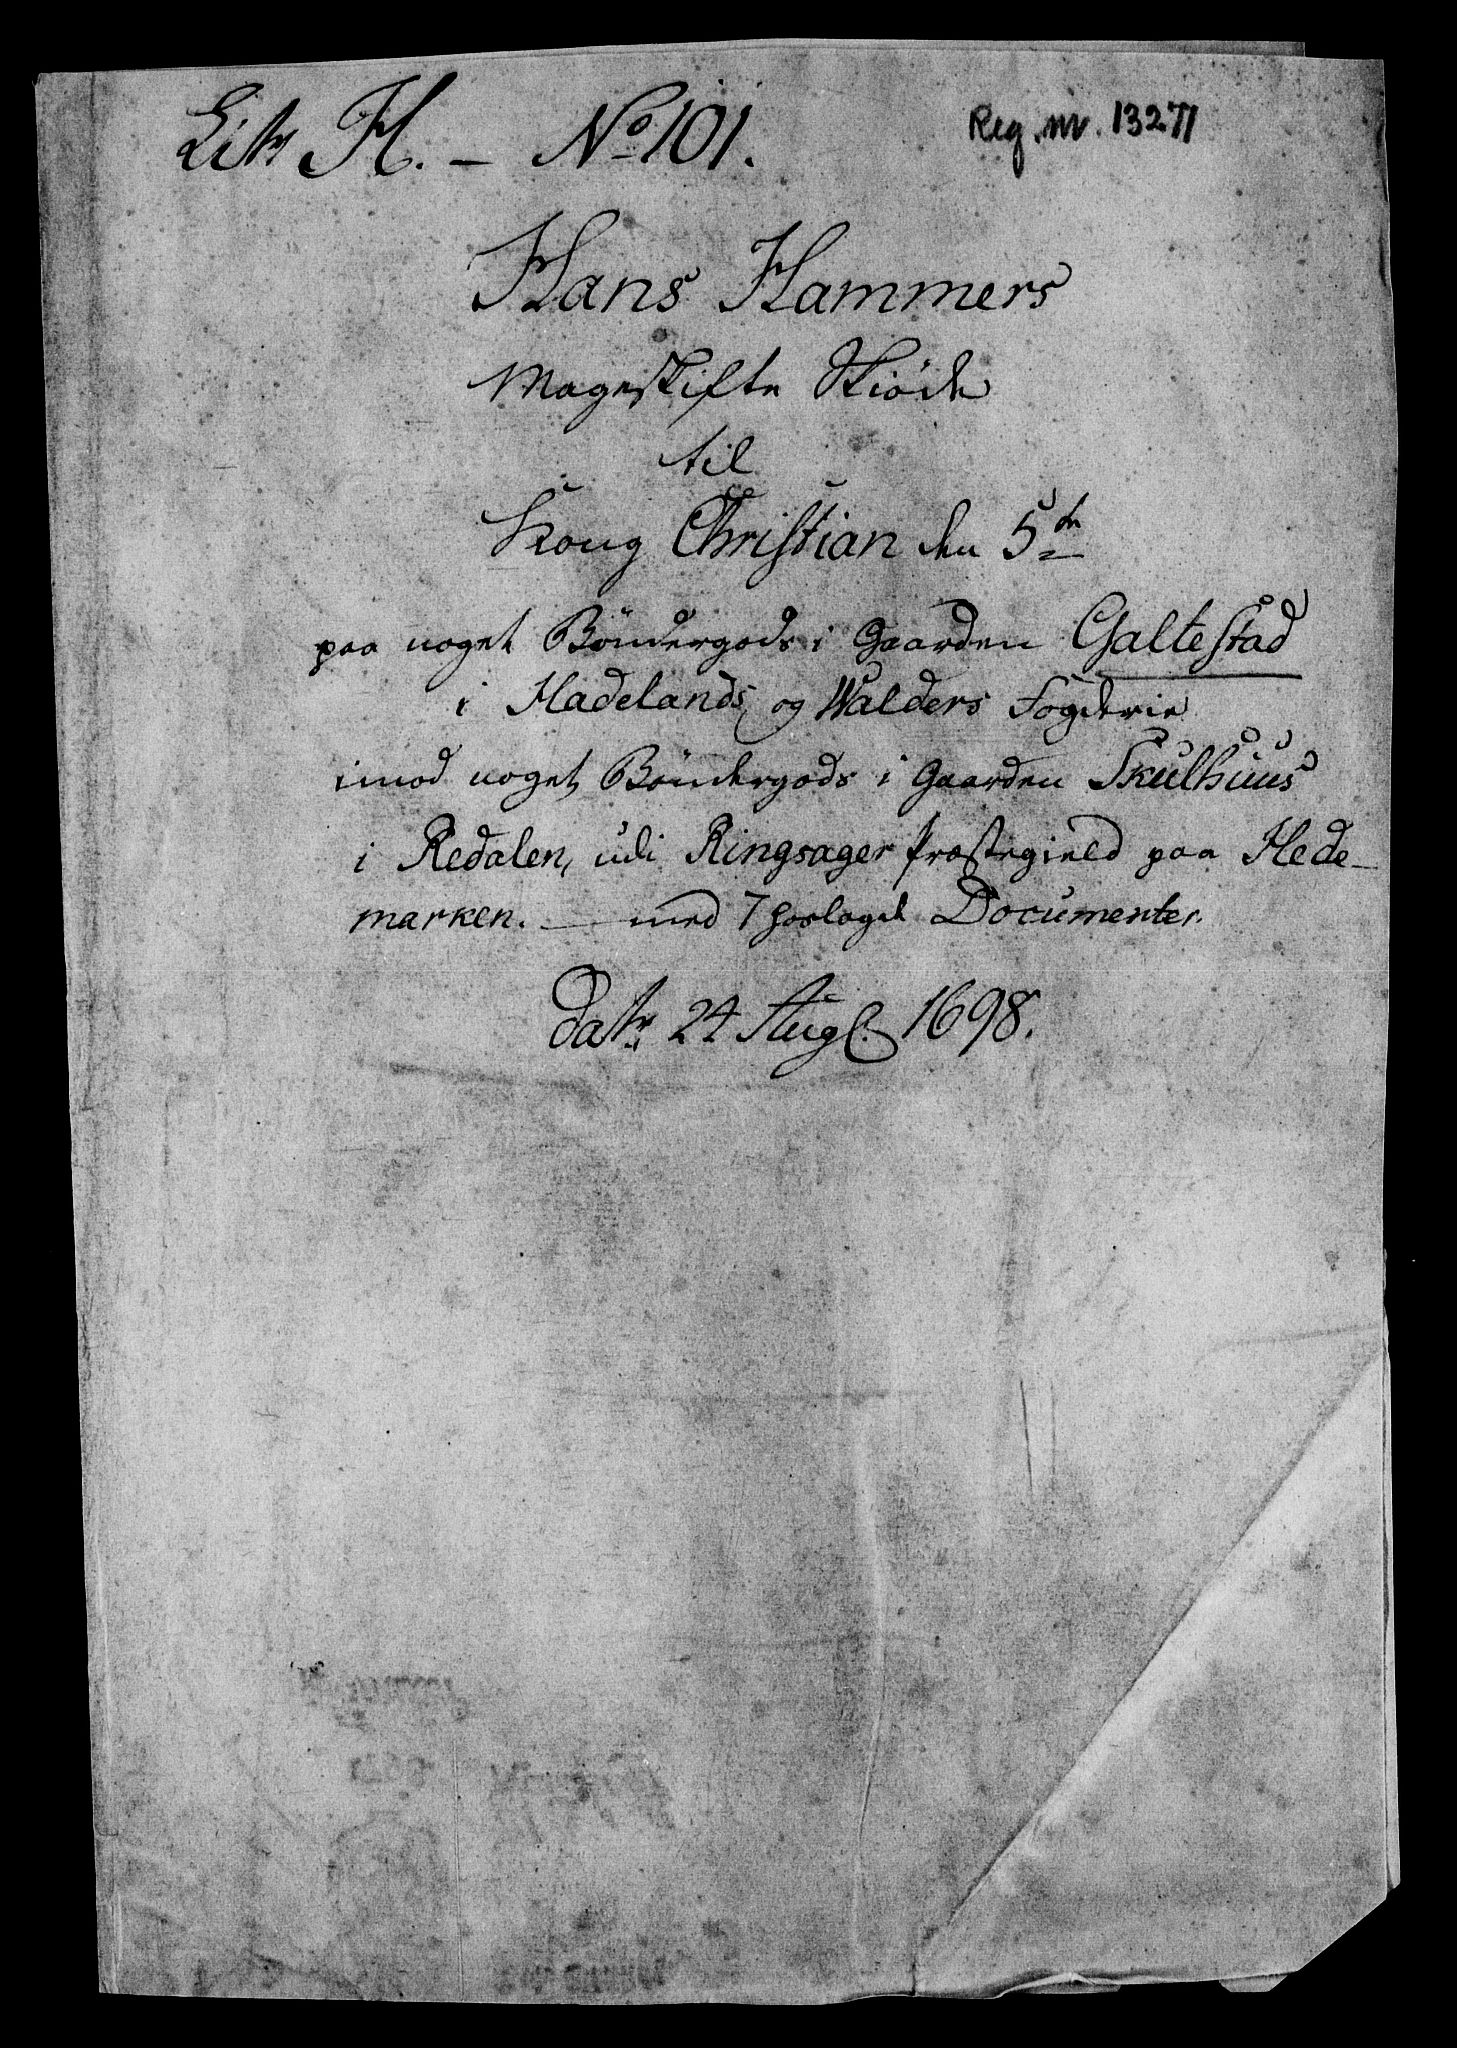 Litr H. – No 101.
Reg. nr. 13271
Hans Hammers
Mageskifte Skiøde
til
Kong Christian den 5te
paa noget Bøndergods i Gaarden Galtestad
i Hadelands og Walders Fogderie
imod noget Bøndergods i Gaarden Skulhuus
i Redalen, udi Ringsager Præstegield paa Hede-
marken. – med 7 hoslagde Documenter.
Datr. 24 Aug. 1698.